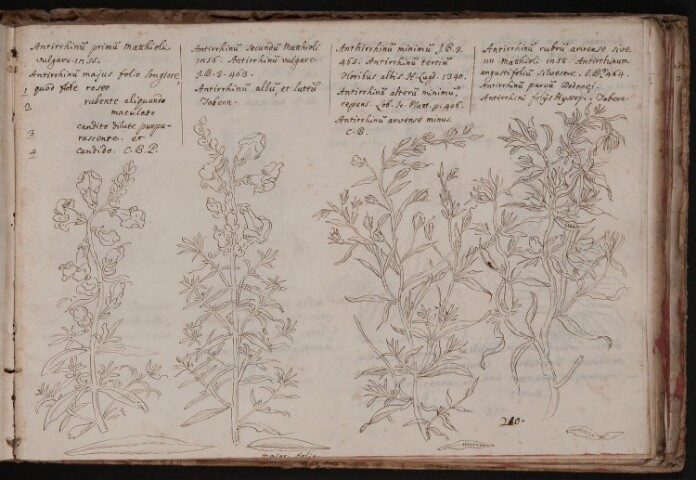 Antirrhinū primū Matthioli
vulgare
Antirrhinū majus folio longiore,
1 quod flore roseo
2 rubente aliquando
maculato
3 candito dilute purpu-
rascente. et
4 candido. C.B.P.
Antirrhinū secundū Matthioli
Antirrhinū vulgare
J.B.3.463.
Antirrhinū albū et luteū
Tabern.
Antirrhinū minimū J.B.3.
464. Antirrhinū tertiū
floribus albis H. Lugd. 1340.
Antirrhinū alterū minimū
repens. Lob. Ic. Plant. p. 406.
Antirrhinū arvense minus.
C.B.
Antirrhinū rubrū arvense sive
Matthioli Antirrhinum
angustifoliū silvestre. J.B. 464.
Antirrhinū parvū Dodonęi.
Antirrhinū folijs Hyssopi. Tabern.
210.
major folio